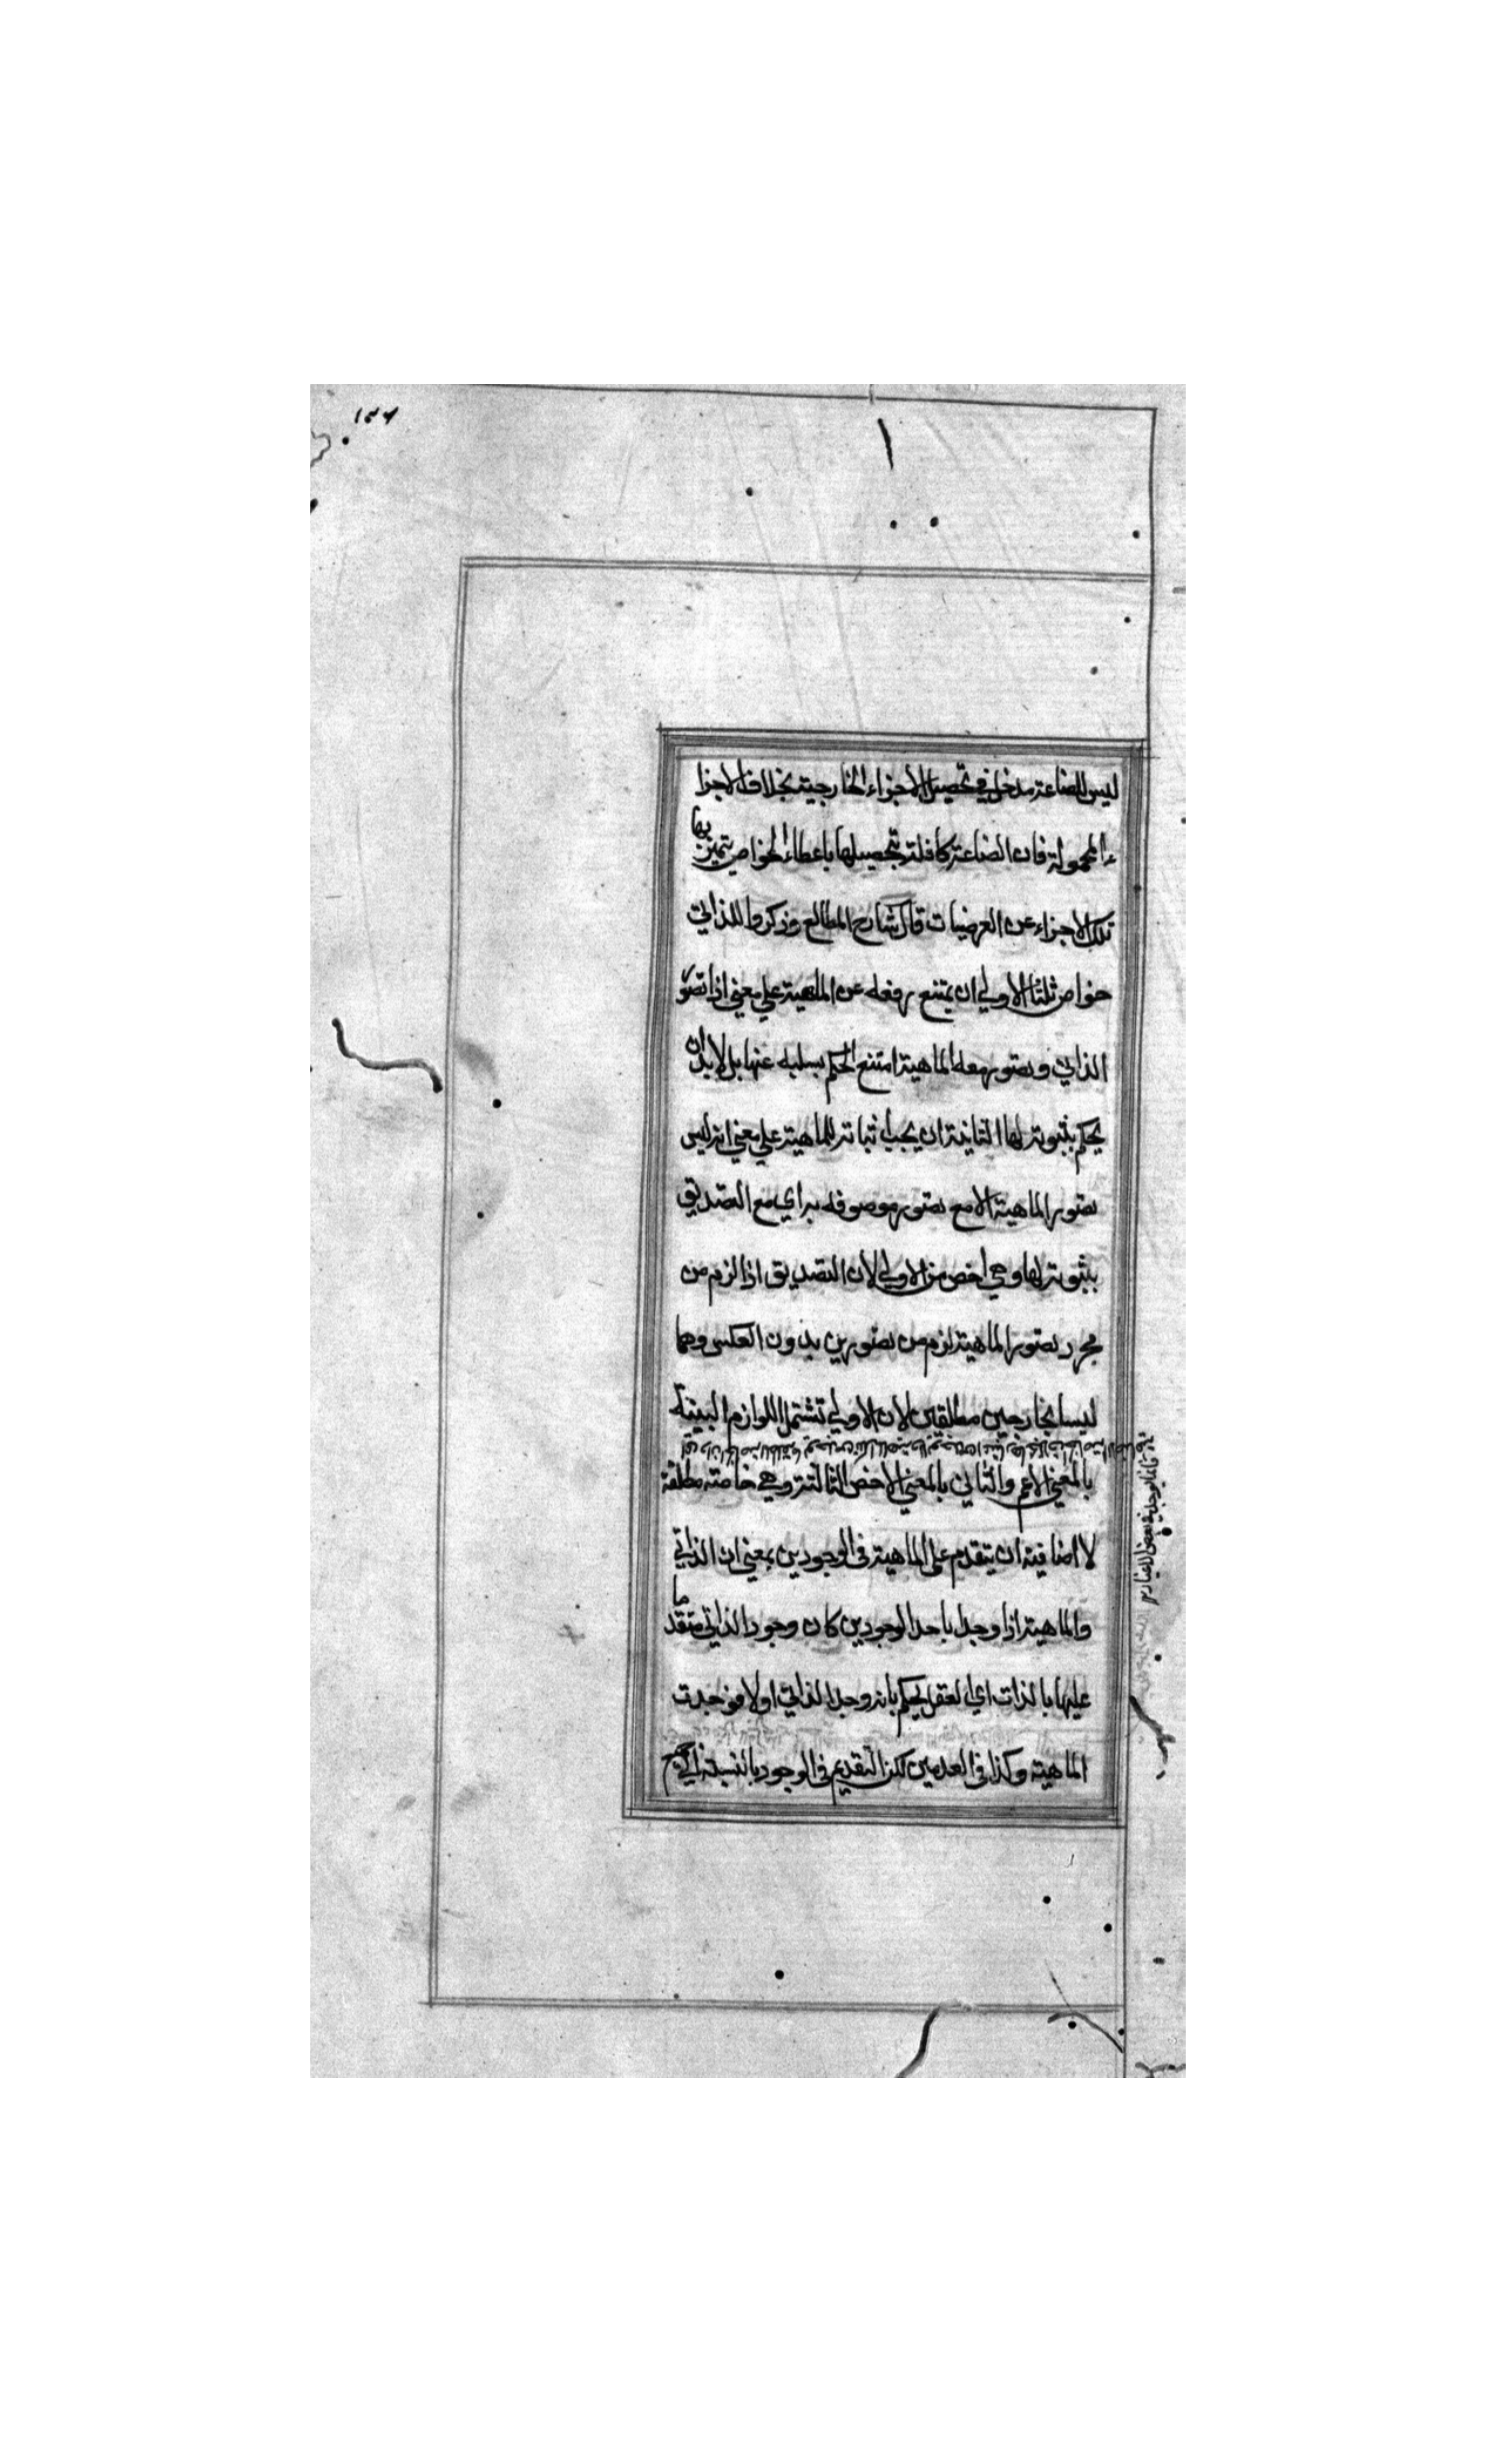 ١٣٦
ليس للصناعة مدخل في تحصيل الاجزاء الخارجية بخلاف الاجزا
ء المحمولة فان الصناعة كافلة بتحصيلها باعطاء الخواص يتميز بها
تلك الاجزاء عن العرضيات قال شارح المطالع وذكروا للذاتي
خواص ثلثا الاولي ان يمتنع رفعه عن الماهية علي معني اذا تصور
الذاتي وتصور معه الماهية امتنع الحكم بسلبه عنها بل لا بد ان
يحكم بثبوته لها الثانية ان يجب اثباته للماهية علي معني انه ليس
تصور الماهية الا مع تصور موصوفه به اي مع التصديق
بثبوته لها وهي اخص من الاولي لان التصديق اذا لزم من
مجرد تصور الماهية لزم من تصورين بدون العكس وهما
ليسا بخارجين مطلقين لان الاولي تشتمل اللوازم البينة
بالمعني الاعم والثاني بالمعني الاخص الثالثة وهي خاصة مطلقة
لا اضافية ان يتقدم علي الماهية في الوجودين بمعني ان الذاتي
والماهية اذا وجدا باحد الوجودين كان وجود الذاتي متقدما
عليها بالذات اي العقل يحكم بانه وجد الذاتي اولا فوجدت
الماهية وكذا في العدمين لكن التقديم في الوجود بالنسبة الي جميع